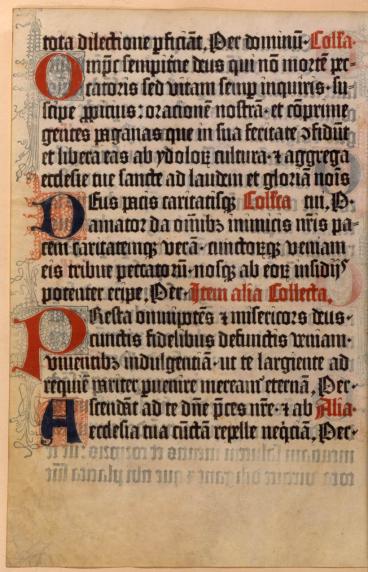 tota dilectione pficiāt. Per dominū. Collca.
Omps sempitne deus qui nō mortē pec-
catoris sed vitam semp inquiris. su
scipe ppicius: oracionē nostrā. et cōprime
gentes paganas que in sua feritate ɔfidūt
et libera eas ab ydoloꝝ cultura. ⁊ aggrega
ecclesie tue sancte ad laudem et gloriā nois
Deus pacis caritatisqꝫ Collcta tui. P.
amator da oībꝫ inimicis nris pa-
cem caritatemqꝫ verā. cunctoꝝqꝫ veniam
eis tribue peccatoꝝ. nosqꝫ ab eoꝝ insidijs
potenter eripe. Per. Item alia Collecta.
Presta omnipotēs ⁊ misericors deus.
cunctis fidelibus defunctis veniam.
viventibꝫ indulgentiā. ut te largiente ad
requiē pariter puenire mereant eternā. Per.
Ascendāt ad te dñe pces nre. ⁊ ab Alia.
ecclesia tua cūctā repelle neqciā. Per.